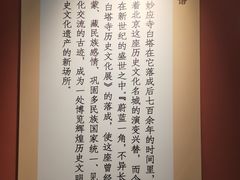 语
妙应寺白塔在它落成后七百余年的时间里,
着北京这座历史文化名城的演变兴替,而今
在新世纪的盛世之中,『蔚蓝一角,不异长
白塔寺历史文化展》的落成,使这座曾经
蒙、藏民族感情、巩固多民族国家统一、见
化交流的古迹,成为一处博览辉煌历史文明
历史文化遗产的新场所。